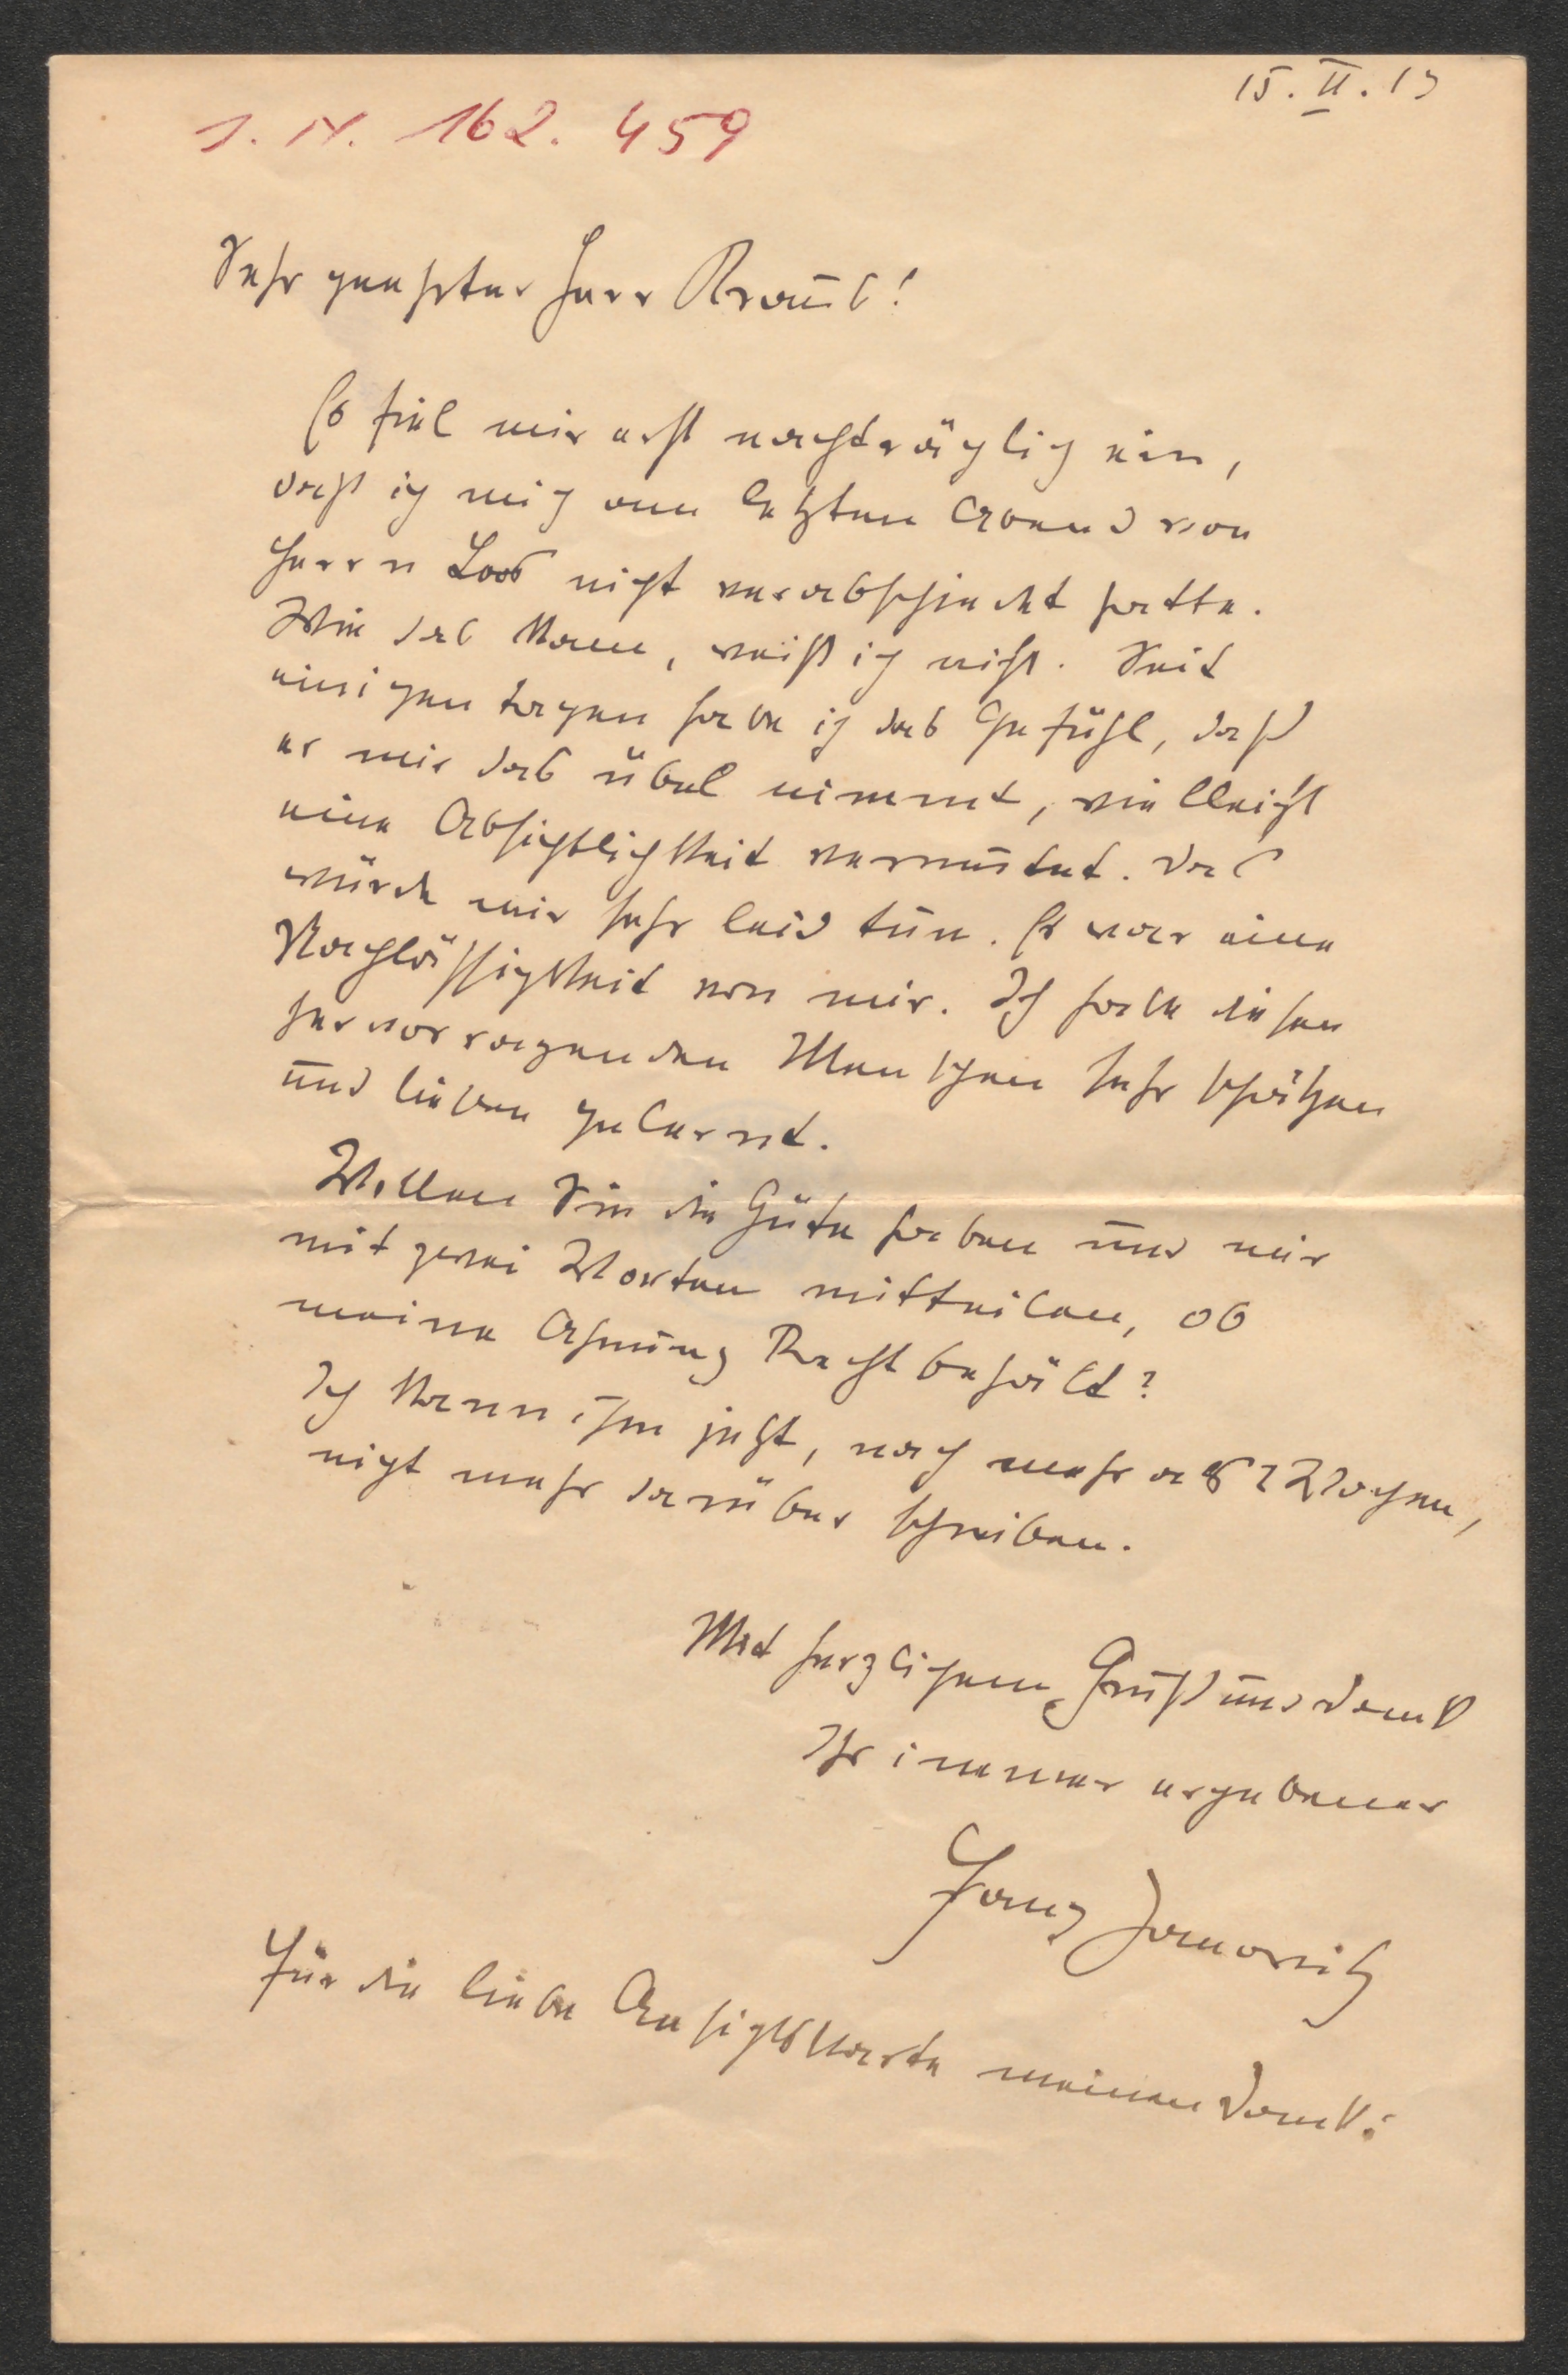 15. II. 13
I. N. 162. 459
Sehr geehrter Herr Kraus!
Es fiel mir erst nachträglich ein,
daß ich mich am letzten Abend von
Herrn Loos nicht verabschiedet hatte.
Wie das kam, weiß ich nicht. Seit
einigen Tagen habe ich das Gefühl, daß
er mir das übel nimmt, vielleicht
eine Absichtlichkeit vermutet. Das
würde mir sehr leid tun. Es war eine
Nachlässigkeit von mir. Ich habe diesen
hervorragenden Menschen sehr schätzen
und lieben gelernt.
Wollen Sie die Güte haben und mir
mit zwei Worten mitteilen, ob
meine Ahnung Recht behält?
Ich kann ihm jetzt, nach mehr als 2 Wochen,
nicht mehr darüber schreiben.
Mit herzlichem Gruß und Dank
Ihr immer ergebener
Franz Janowitz
Für die liebe Ansichtskarte meinen Dank!